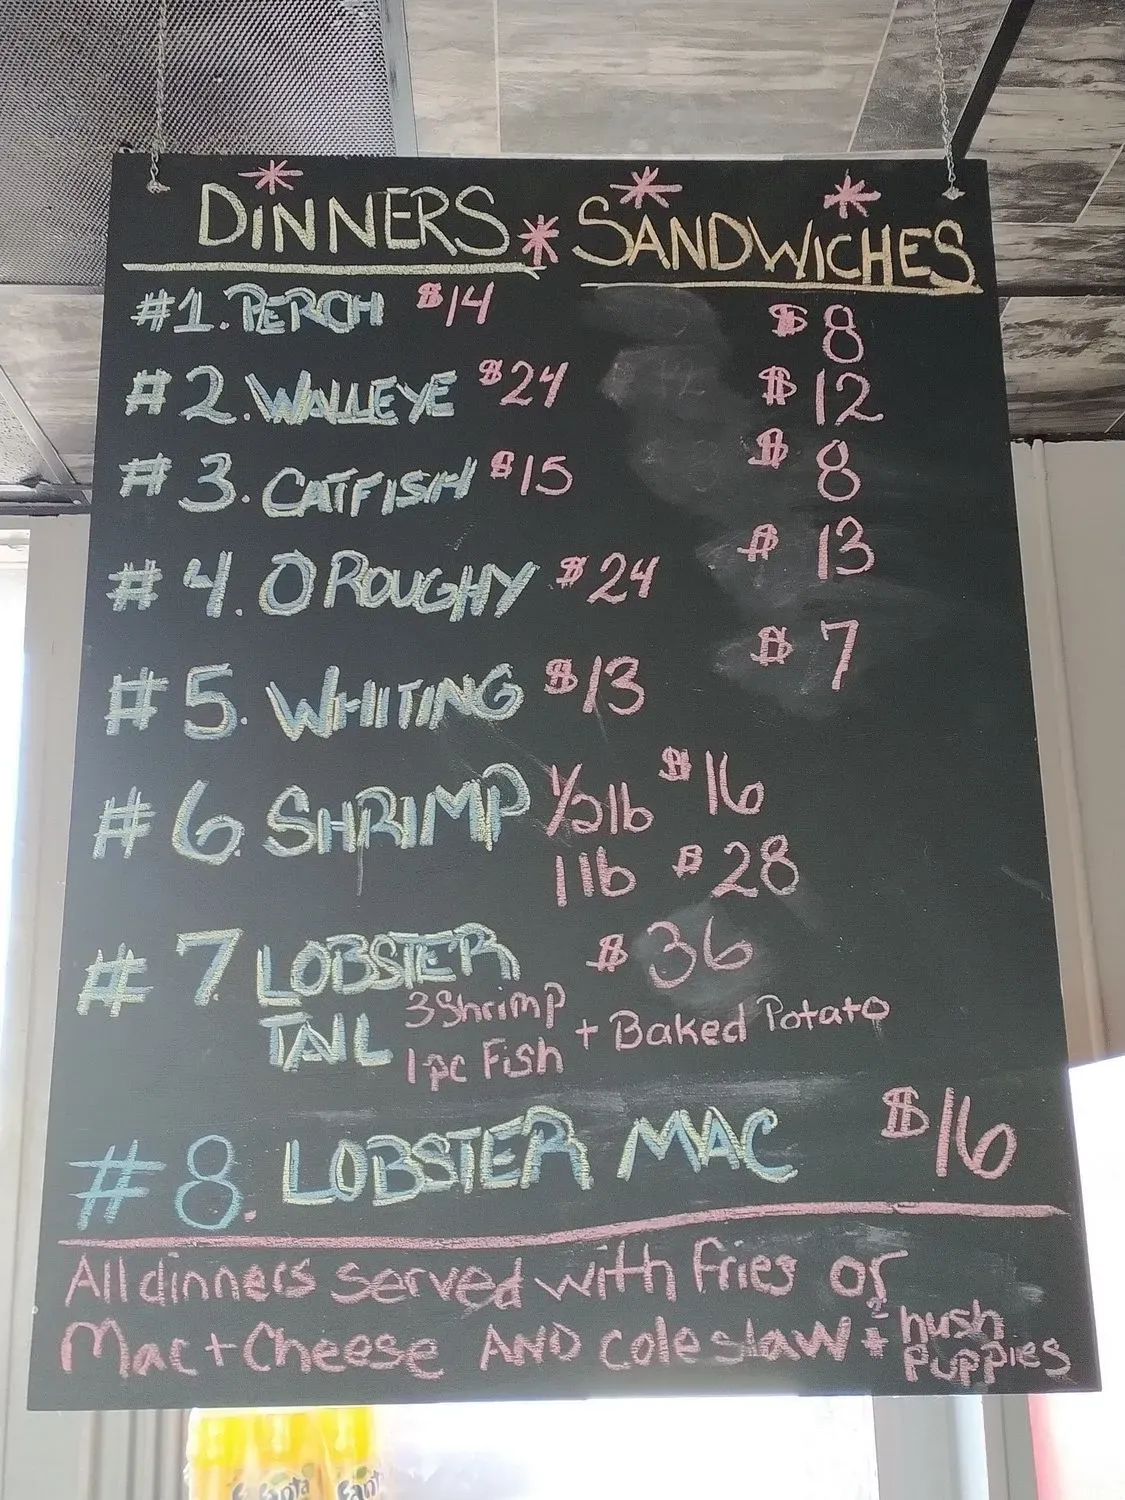 DINNERS * SANDWICHES
#1. PERCH $14 $8
#2. WALLEYE $24 $12
#3. CATFISH $15 $8
#4. O ROUGHY $24 $13
#5. WHITING $13 $7
#6. SHRIMP 1/2lb $16
1lb $28
#7. LOBSTER $36
TAIL 3 Shrimp + Baked Potato
1pc Fish
#8. LOBSTER MAC $16
All dinners served with Fries or
Mac + Cheese AND coleslaw + 2 hush
puppies
Fanta Fanta